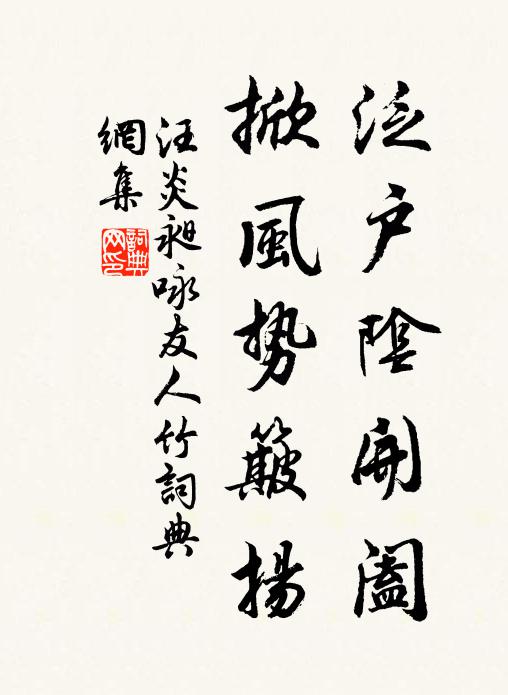 泛戶陰開闔
掀風勢簸揚
汪炎昶咏友人竹詞典
網集
詞典
网印